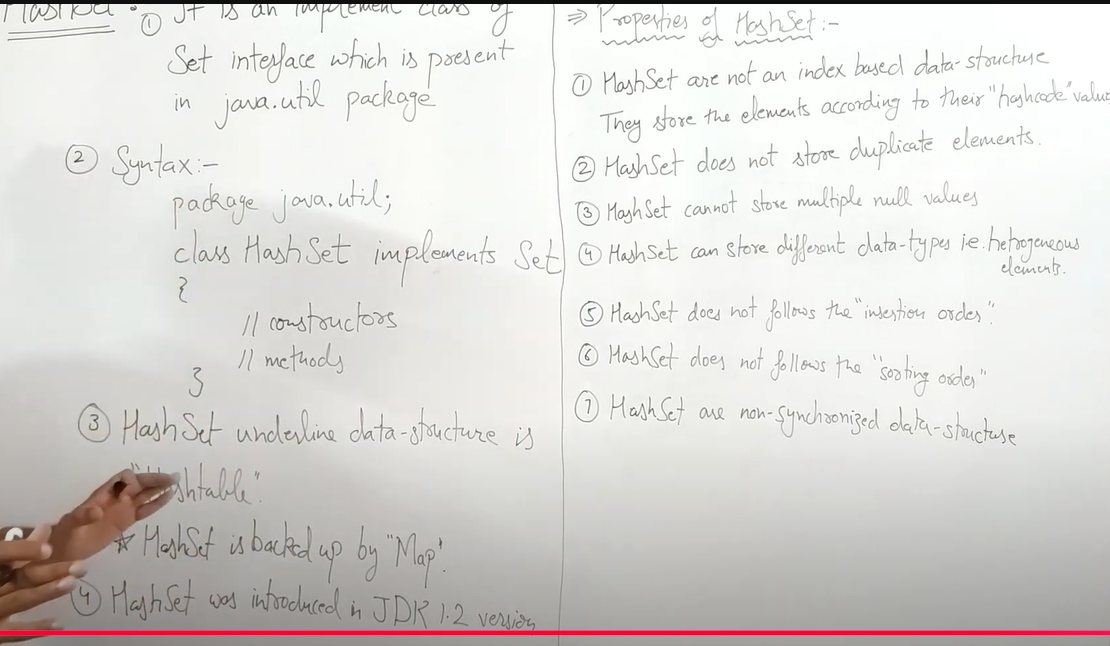 HashSet :- ① It is an implement class of
Set interface which is present
in java.util package
② Syntax:-
package java.util;
class HashSet implements Set
{
// constructors
// methods
}
③ HashSet underline data-structure is
"Hashtable".
☆ HashSet is backed up by "Map".
④ HashSet was introduced in JDK 1.2 version
⇒ Properties of HashSet:-
① HashSet are not an index based data-structure
They store the elements according to their "hashcode" value
② HashSet does not store duplicate elements.
③ HashSet cannot store multiple null values
④ HashSet can store different data-types i.e. hetrogeneous
elements.
⑤ HashSet does not follows the "insertion order".
⑥ HashSet does not follows the "sorting order"
⑦ HashSet are non-synchronized data-structure